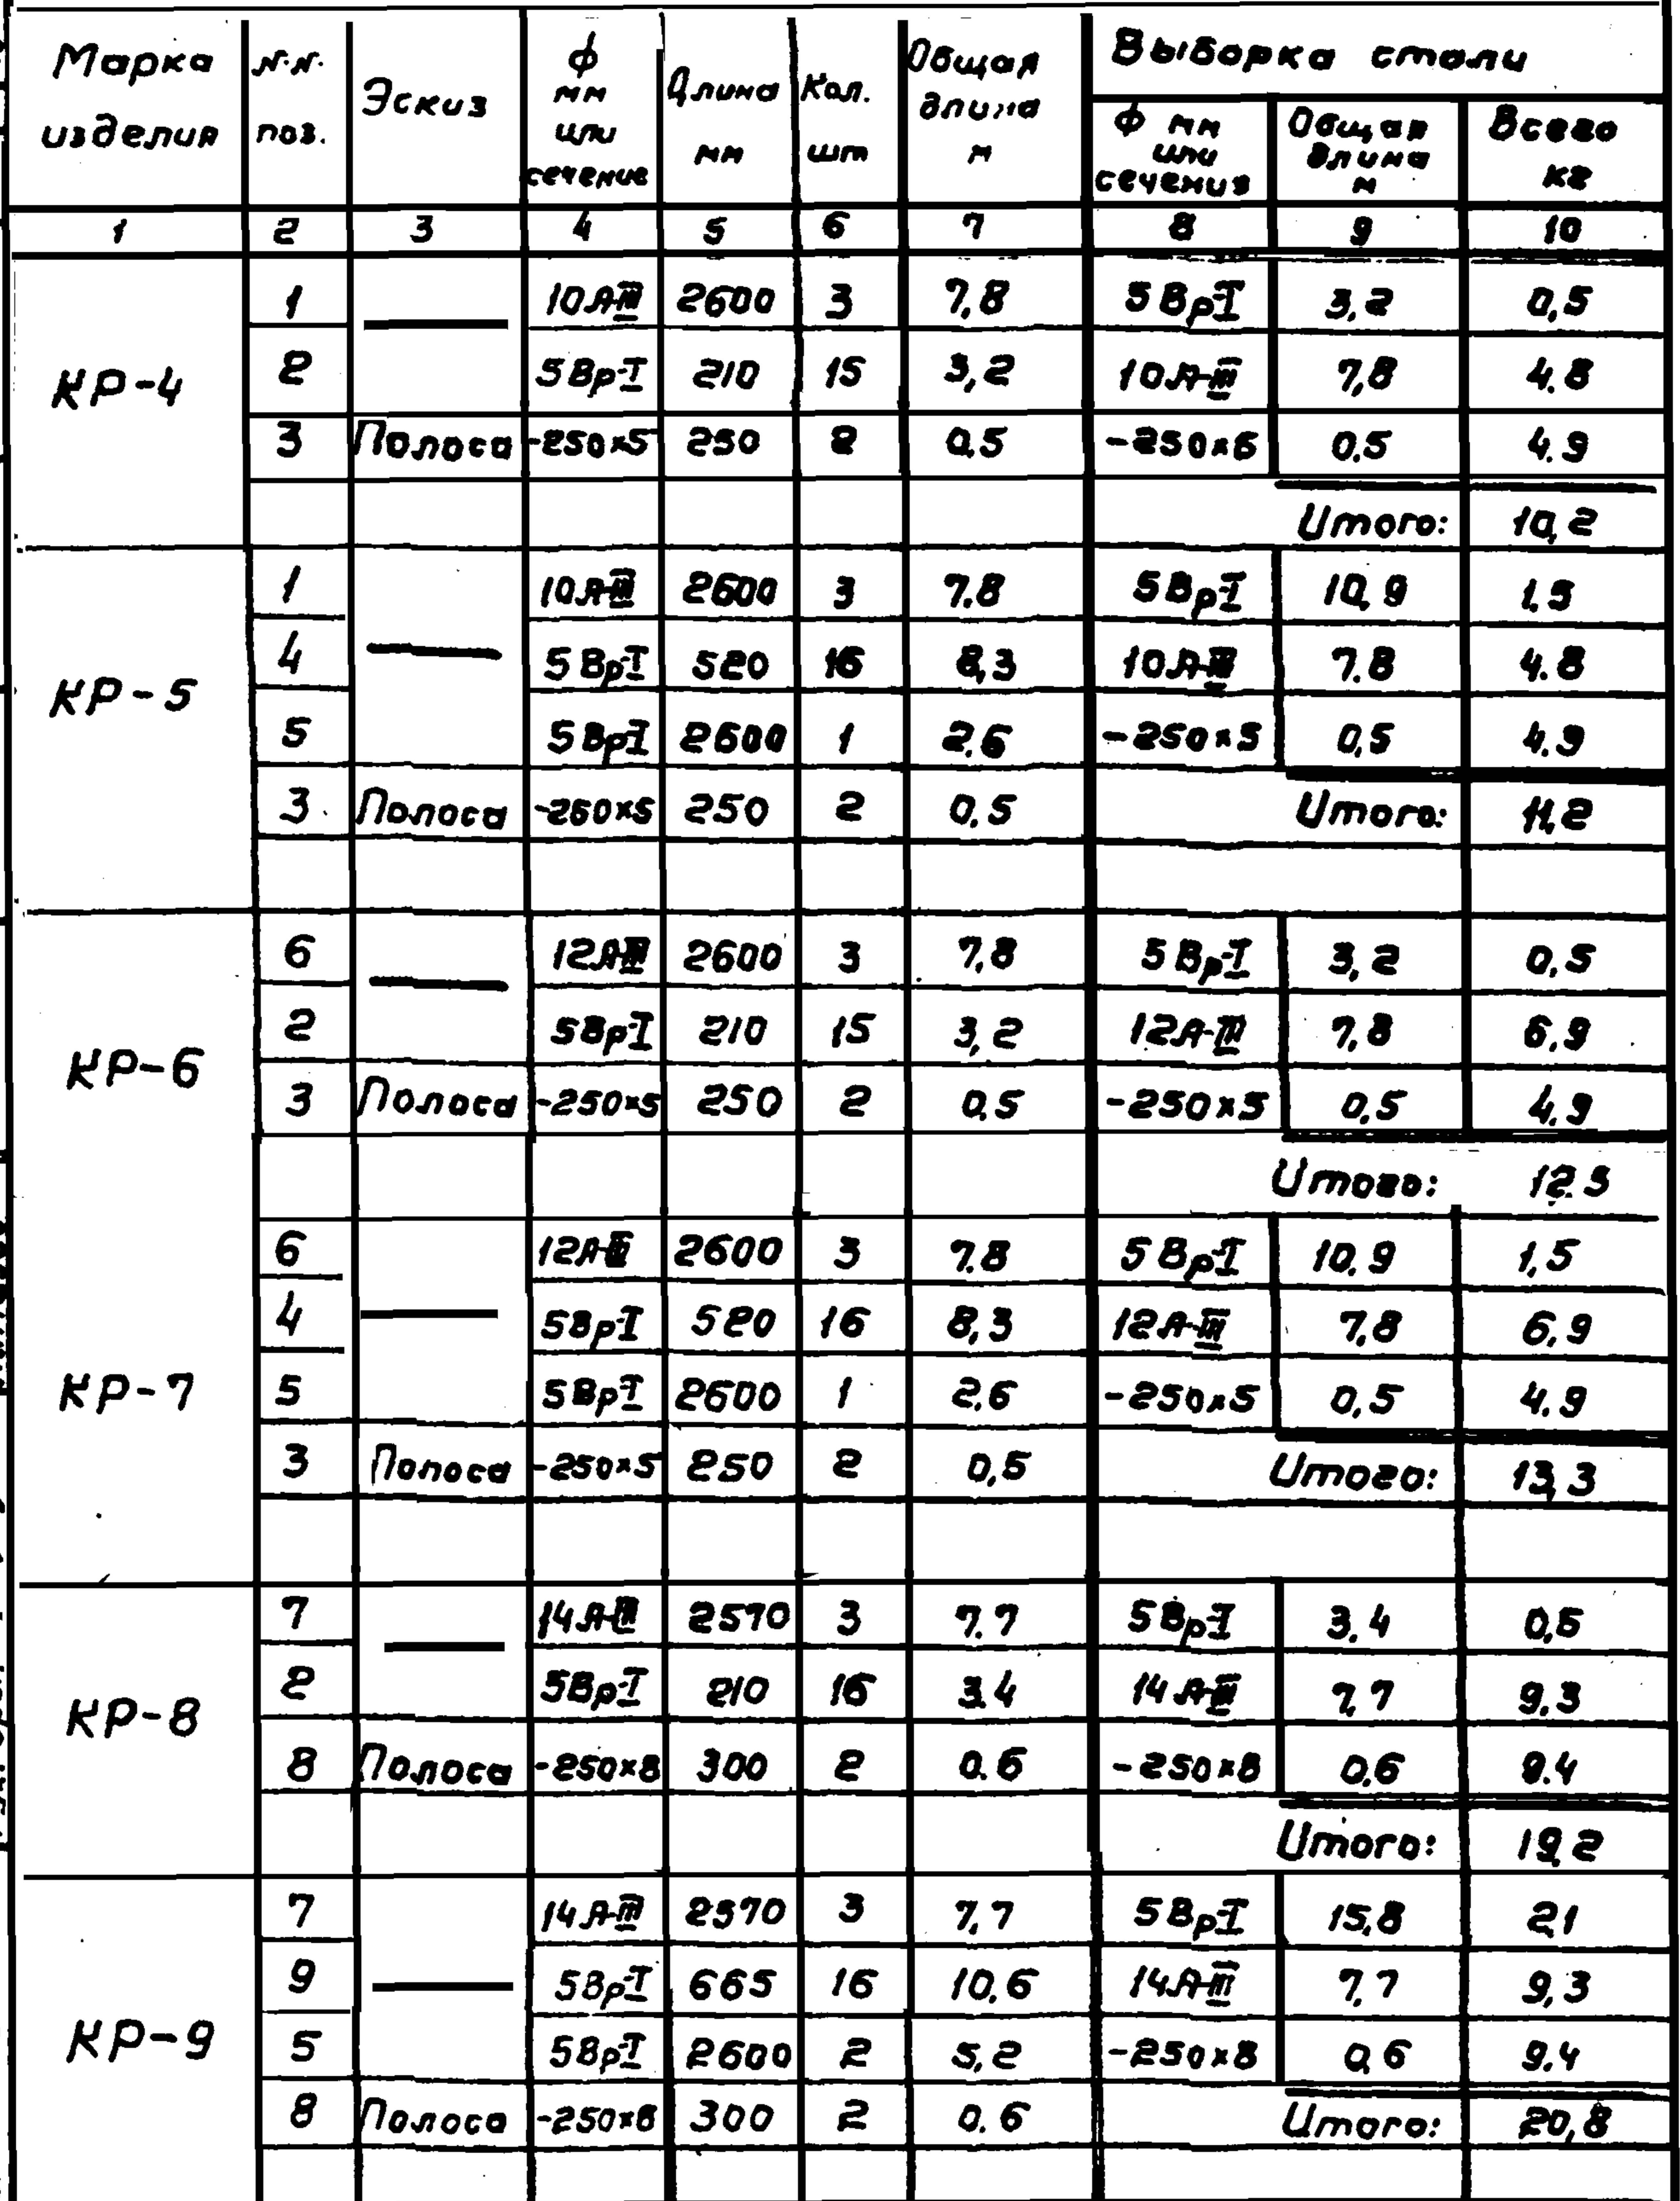 Марка изделия | N.N. поз. | Эскиз | ф мм или сечение | Длина мм | Кол. шт | Общая длина м | Выборка стали
ф мм или сечения | Общая длина м | Всего кг
1 | 2 | 3 | 4 | 5 | 6 | 7 | 8 | 9 | 10
КР-4
1 | — | 10А-III | 2600 | 3 | 7,8 | 5Вр-I | 3,2 | 0,5
2 | 5Вр-I | 210 | 15 | 3,2 | 10А-III | 7,8 | 4.8
3 | Полоса | -250×5 | 250 | 2 | 0,5 | -250×6 | 0.5 | 4.9
Итого: | 10,2
КР-5
1 | 10А-III | 2600 | 3 | 7.8 | 5Вр-I | 10,9 | 1.5
4 | — | 5Вр-I | 520 | 16 | 8,3 | 10А-III | 7.8 | 4.8
5 | 5Вр-I | 2600 | 1 | 2.6 | -250×5 | 0,5 | 4.9
3 | Полоса | -250×5 | 250 | 2 | 0,5 | Итого: | 11,2
КР-6
6 | — | 12А-III | 2600 | 3 | 7,8 | 5Вр-I | 3,2 | 0,5
2 | 5Вр-I | 210 | 15 | 3,2 | 12А-III | 7,8 | 6,9
3 | Полоса | -250×5 | 250 | 2 | 0,5 | -250×5 | 0,5 | 4,9
Итого: | 12.3
КР-7
6 | 12А-III | 2600 | 3 | 7.8 | 5Вр-I | 10.9 | 1,5
4 | — | 5Вр-I | 520 | 16 | 8,3 | 12А-III | 7,8 | 6,9
5 | 5Вр-I | 2600 | 1 | 2.6 | -250×5 | 0,5 | 4.9
3 | Полоса | -250×5 | 250 | 2 | 0,5 | Итого: | 13,3
КР-8
7 | — | 14А-III | 2570 | 3 | 7.7 | 5Вр-I | 3.4 | 0,5
2 | 5Вр-I | 210 | 16 | 3.4 | 14А-III | 7,7 | 9,3
8 | Полоса | -250×8 | 300 | 2 | 0.6 | -250×8 | 0,6 | 9.4
Итого: | 19,2
КР-9
7 | 14А-III | 2570 | 3 | 7,7 | 5Вр-I | 15,8 | 2,1
9 | — | 5Вр-I | 665 | 16 | 10,6 | 14А-III | 7,7 | 9,3
5 | 5Вр-I | 2600 | 2 | 5,2 | -250×8 | 0,6 | 9.4
8 | Полоса | -250×8 | 300 | 2 | 0.6 | Итого: | 20,8